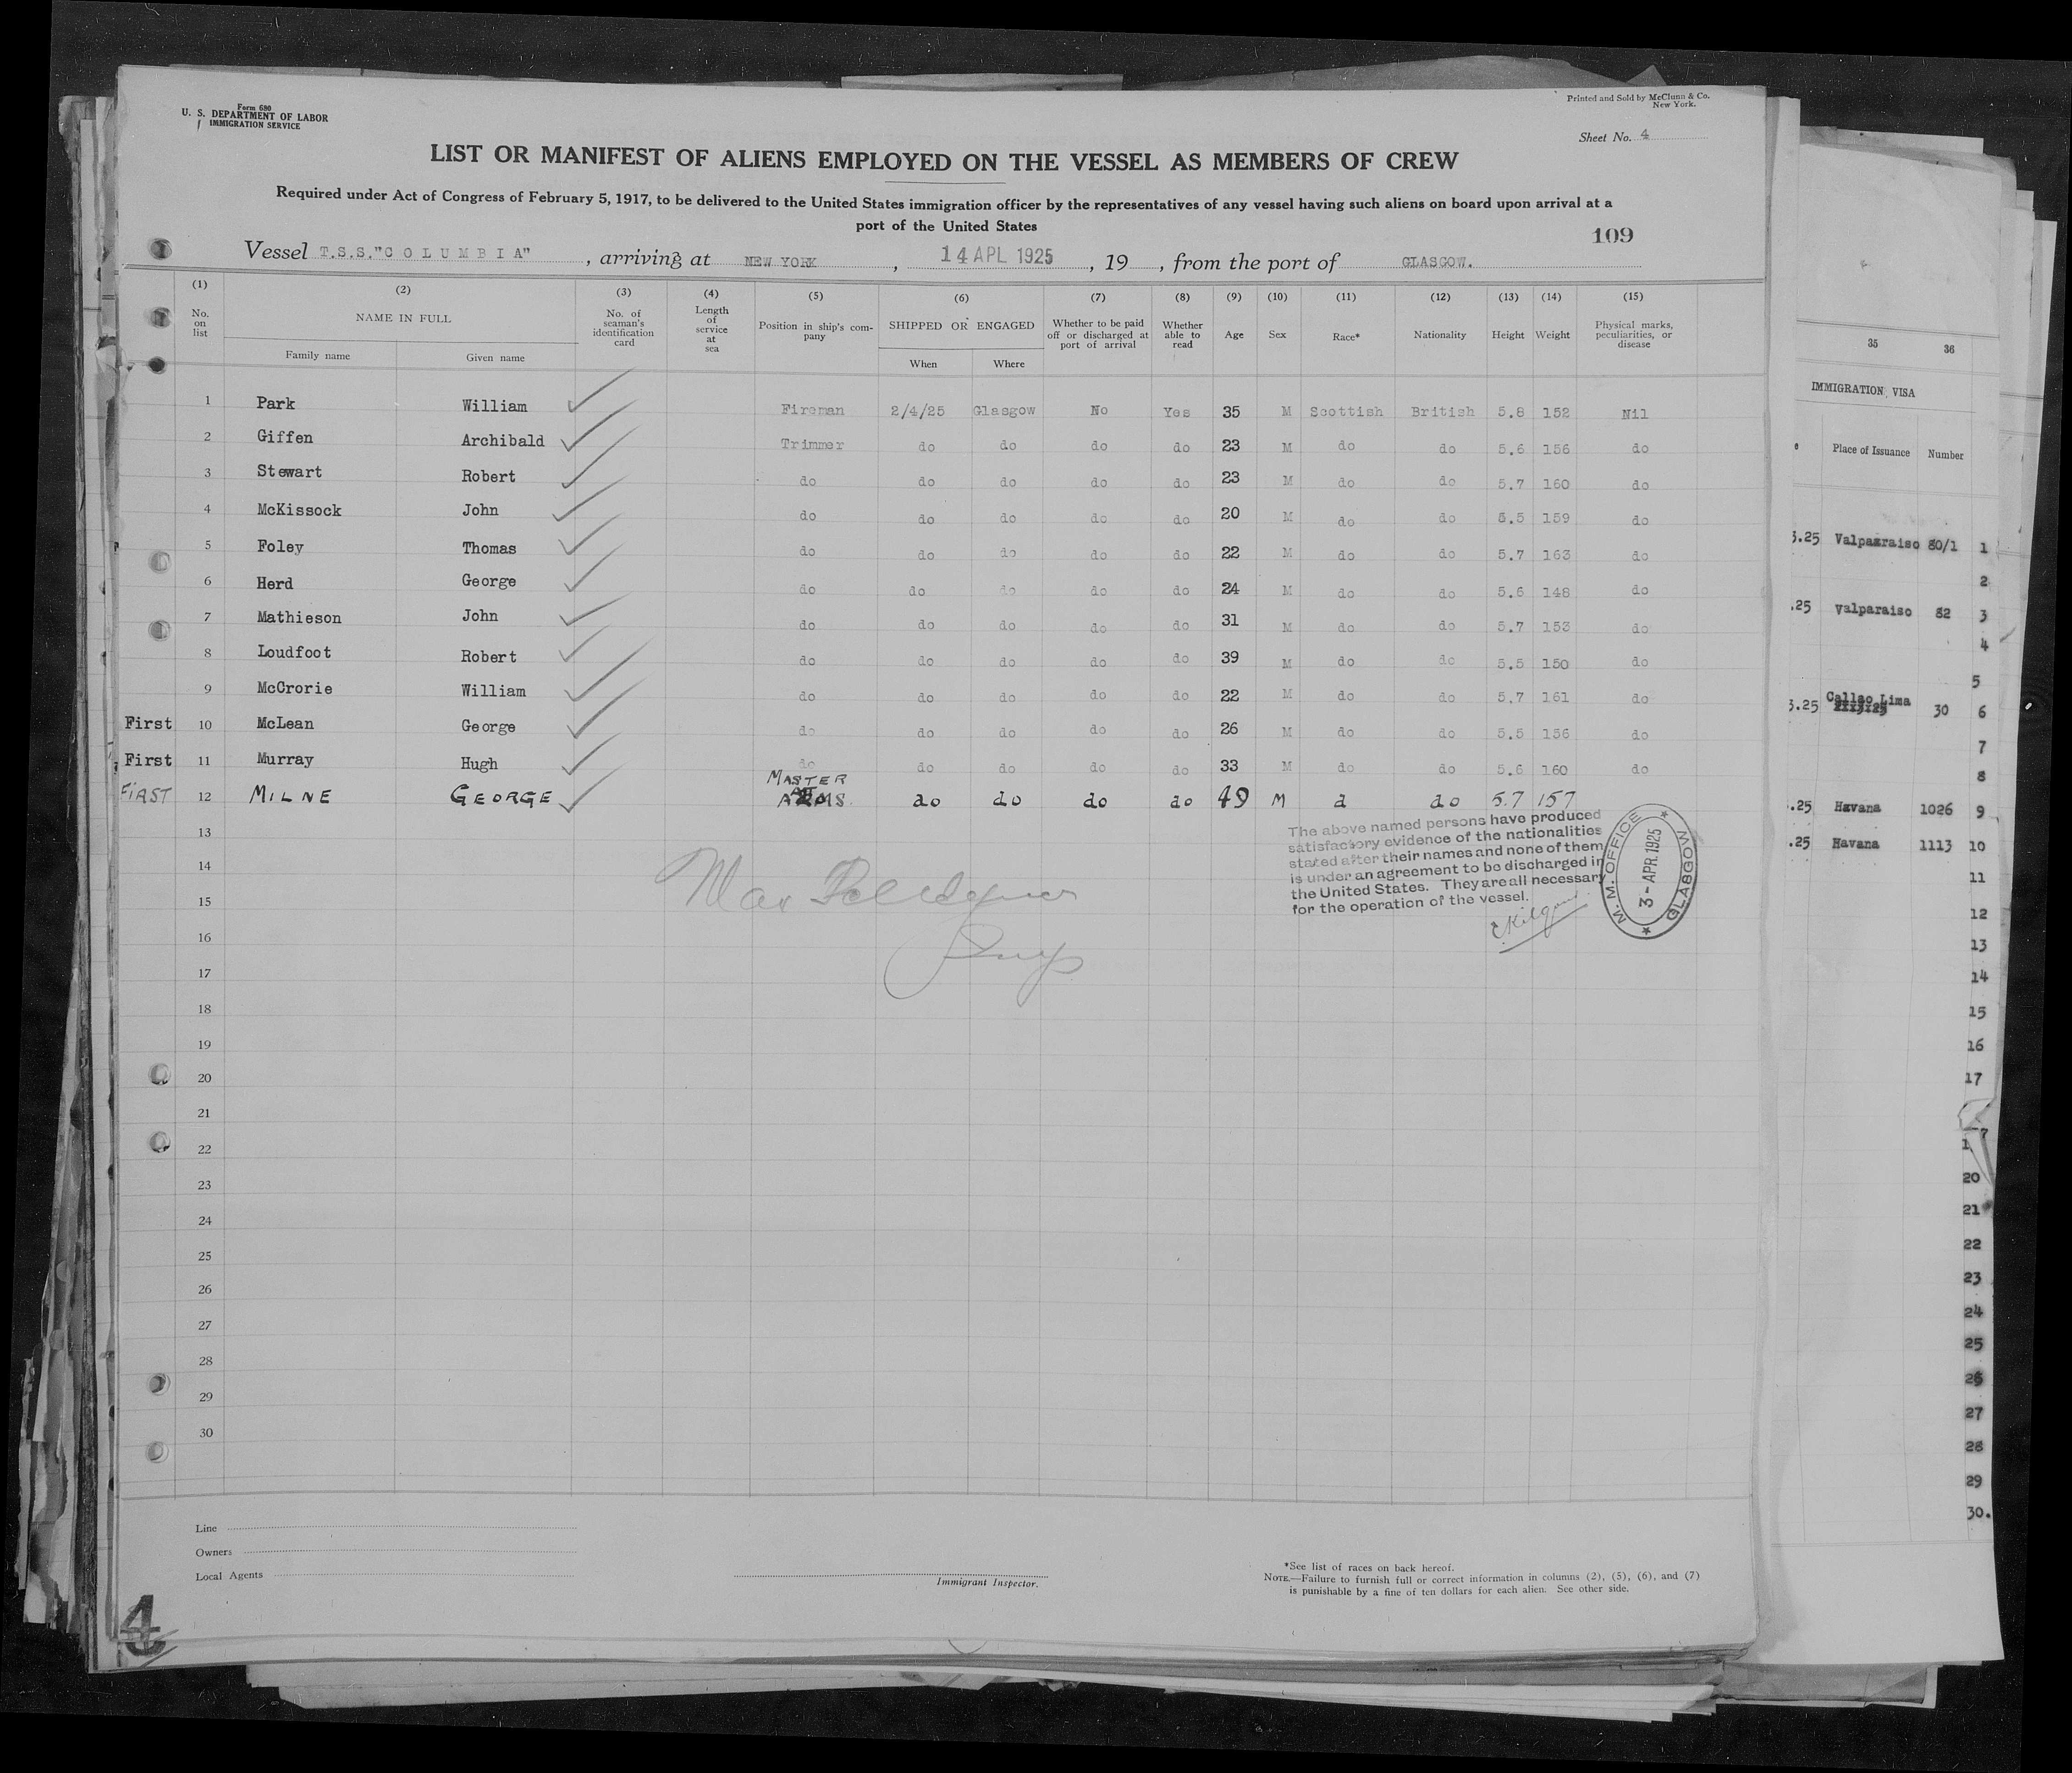 Form 680
U. S. DEPARTMENT OF LABOR
IMMIGRATION SERVICE
Printed and Sold by McClunn & Co.
New York.
Sheet No. 4
LIST OR MANIFEST OF ALIENS EMPLOYED ON THE VESSEL AS MEMBERS OF CREW
Required under Act of Congress of February 5, 1917, to be delivered to the United States immigration officer by the representatives of any vessel having such aliens on board upon arrival at a
port of the United States
109
Vessel T.S.S."COLUMBIA", arriving at NEW YORK, 14 APL 1925, 19 , from the port of GLASGOW.
(1) (2) (3) (4) (5) (6) (7) (8) (9) (10) (11) (12) (13) (14) (15)
No. on list NAME IN FULL No. of seaman's identification card Length of service at sea Position in ship's company SHIPPED OR ENGAGED Whether to be paid off or discharged at port of arrival Whether able to read Age Sex Race* Nationality Height Weight Physical marks, peculiarities, or disease
Family name Given name When Where
1 Park William Fireman 2/4/25 Glasgow No Yes 35 M Scottish British 5.8 152 Nil
2 Giffen Archibald Trimmer do do do do 23 M do do 5.6 156 do
3 Stewart Robert do do do do do 23 M do do 5.7 160 do
4 McKissock John do do do do do 20 M do do 5.5 159 do
5 Foley Thomas do do do do do 22 M do do 5.7 163 do
6 Herd George do do do do do 24 M do do 5.6 148 do
7 Mathieson John do do do do do 31 M do do 5.7 153 do
8 Loudfoot Robert do do do do do 39 M do do 5.5 150 do
9 McCrorie William do do do do do 22 M do do 5.7 161 do
First 10 McLean George do do do do do 26 M do do 5.5 156 do
First 11 Murray Hugh do do do do do 33 M do do 5.6 160 do
FIRST 12 MILNE GEORGE MASTER AT ARMS do do do do 49 M d do 5.7 157
13
14
15
16
17
18
19
20
21
22
23
24
25
26
27
28
29
30
The above named persons have produced
satisfactory evidence of the nationalities
stated after their names and none of them
is under an agreement to be discharged in
the United States. They are all necessary
for the operation of the vessel.
M. M. OFFICE GLASGOW
3 - APR. 1925
Line
Owners
Local Agents
Immigrant Inspector.
*See list of races on back hereof.
NOTE.—Failure to furnish full or correct information in columns (2), (5), (6), and (7)
is punishable by a fine of ten dollars for each alien. See other side.
4
35 36
IMMIGRATION VISA
Place of Issuance Number
.25 Valparaiso 80/1 1
2
.25 Valparaiso 82 3
4
5
3.25 Callao Lima 30 6
7
8
.25 Havana 1026 9
.25 Havana 1113 10
11
12
13
14
15
16
17
20
21
22
23
24
25
26
27
28
29
30.